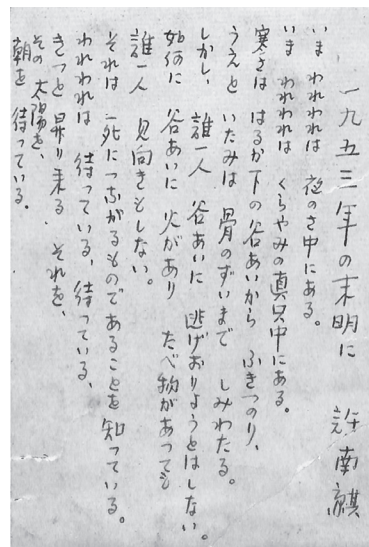 一九五三年の未明に 許南麒
いま われわれは 夜のさ中にある。
いま われわれは くらやみの真只中にある。
寒さは はるか下の谷あいから ふきつのり、
うえと いたみは 骨のずいまで しみわたる。
しかし、 誰一人 谷あいに 逃げおりようとはしない。
如何に 谷あいに 火があり たべ物があっても
誰一人 見向きもしない。
それは 死につながるものであることを 知っている。
われわれは 待っている、待っている、
きっと 昇り来る それを、
その 太陽を、
朝を 待っている。